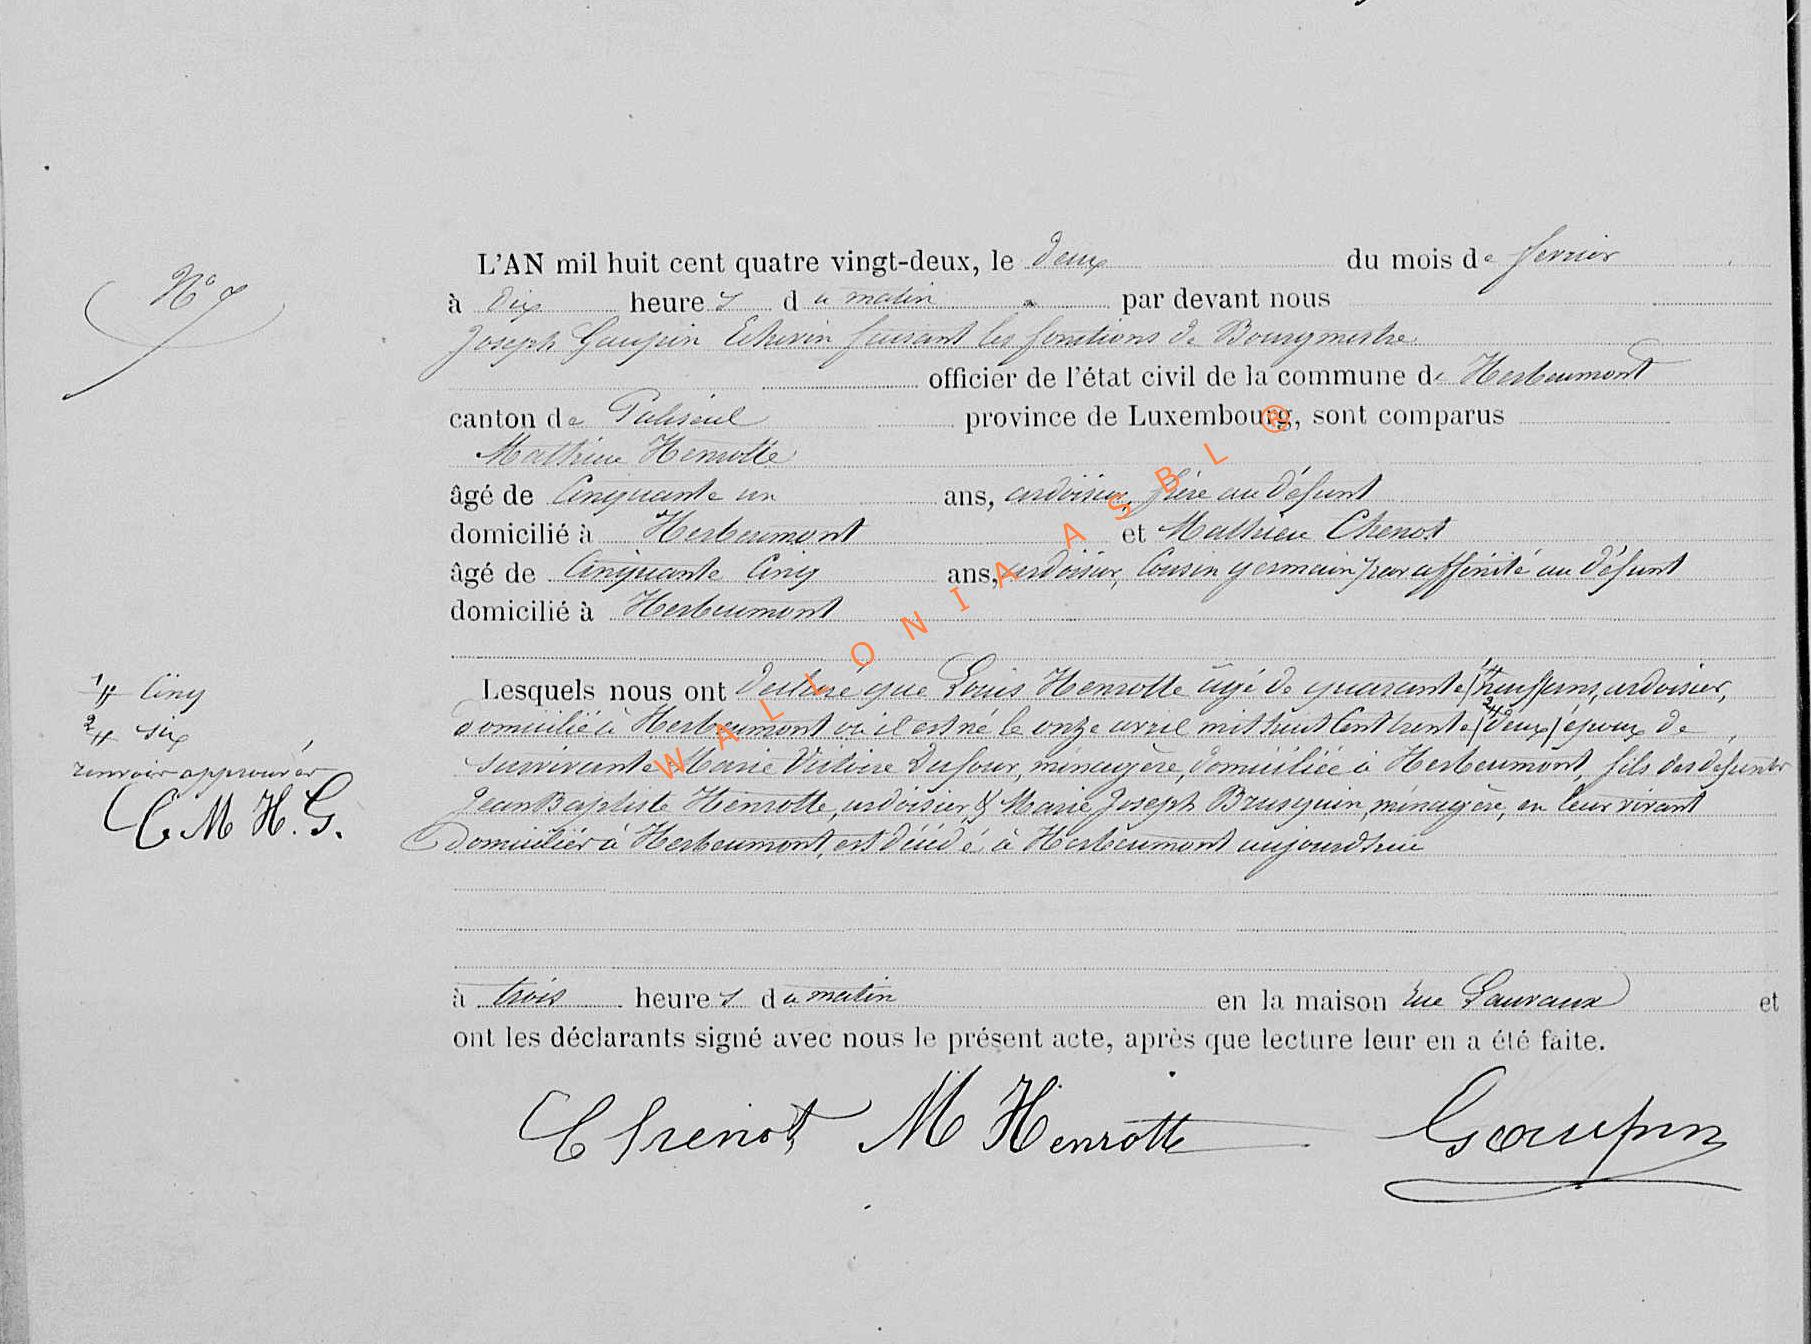 N° 7
L'AN mil huit cent quatre vingt-deux, le deux du mois de fevrier
à dix heures du matin par devant nous
Joseph Gaupin Echevin faisant les fonctions de Bourgmestre
officier de l'état civil de la commune de Herbeumont
canton de Paliseul province de Luxembourg, sont comparus
Mathieu Henrotte
âgé de Cinquante un ans, ardoisier, frère au défunt
domicilié à Herbeumont et Mathieu Chenot
âgé de Cinquante Cinq ans, ardoisier, Cousin germain par affinité au défunt
domicilié à Herbeumont
Lesquels nous ont déclaré que Louis Henrotte âgé de quarante (1# neuf) ans, ardoisier,
domicilié à Herbeumont où il est né le onze avril mil huit Cent trente (2# deux) époux de
survivante Marie Victoire Dufour, ménagère, domiciliée à Herbeumont, fils des defunts
Jean Baptiste Henrotte, ardoisier, & Marie Joseph Brusquin, ménagère, en leur vivant
domiciliés à Herbeumont, est décédé, à Herbeumont aujourd'hui
à trois heures du matin en la maison rue Lauvaux et
ont les déclarants signé avec nous le présent acte, après que lecture leur en a été faite.
1 # Cinq
2 # six
renvois approuvés
C M H. G.
Chenot M Henrotte Gaupin
WALLONIA ASBL ®